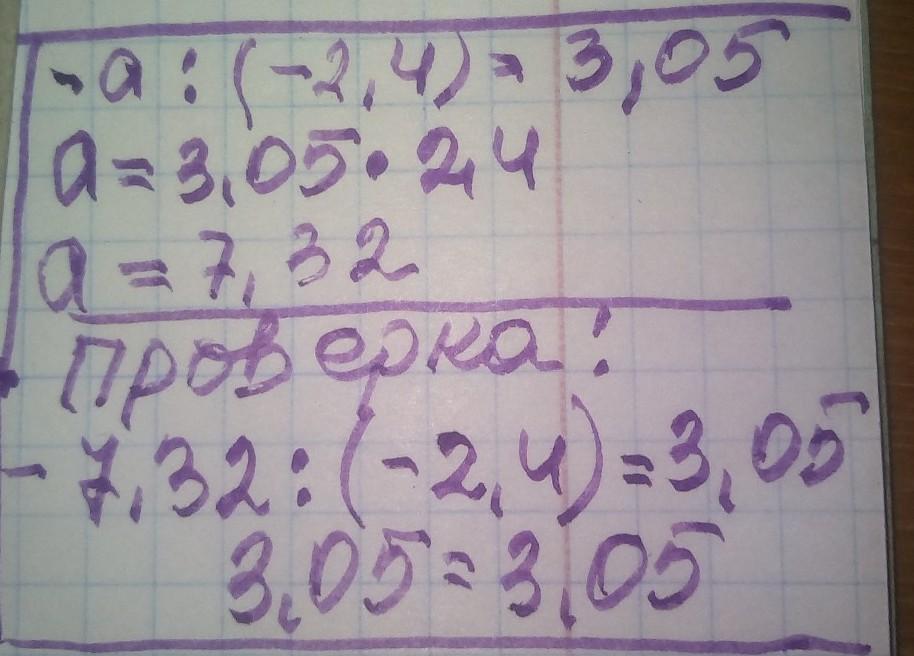 -a : (-2,4) = 3,05
a = 3,05 • 24
a = 7,32
Проверка:
- 7,32 : (-2,4) = 3,05
3,05 = 3,05